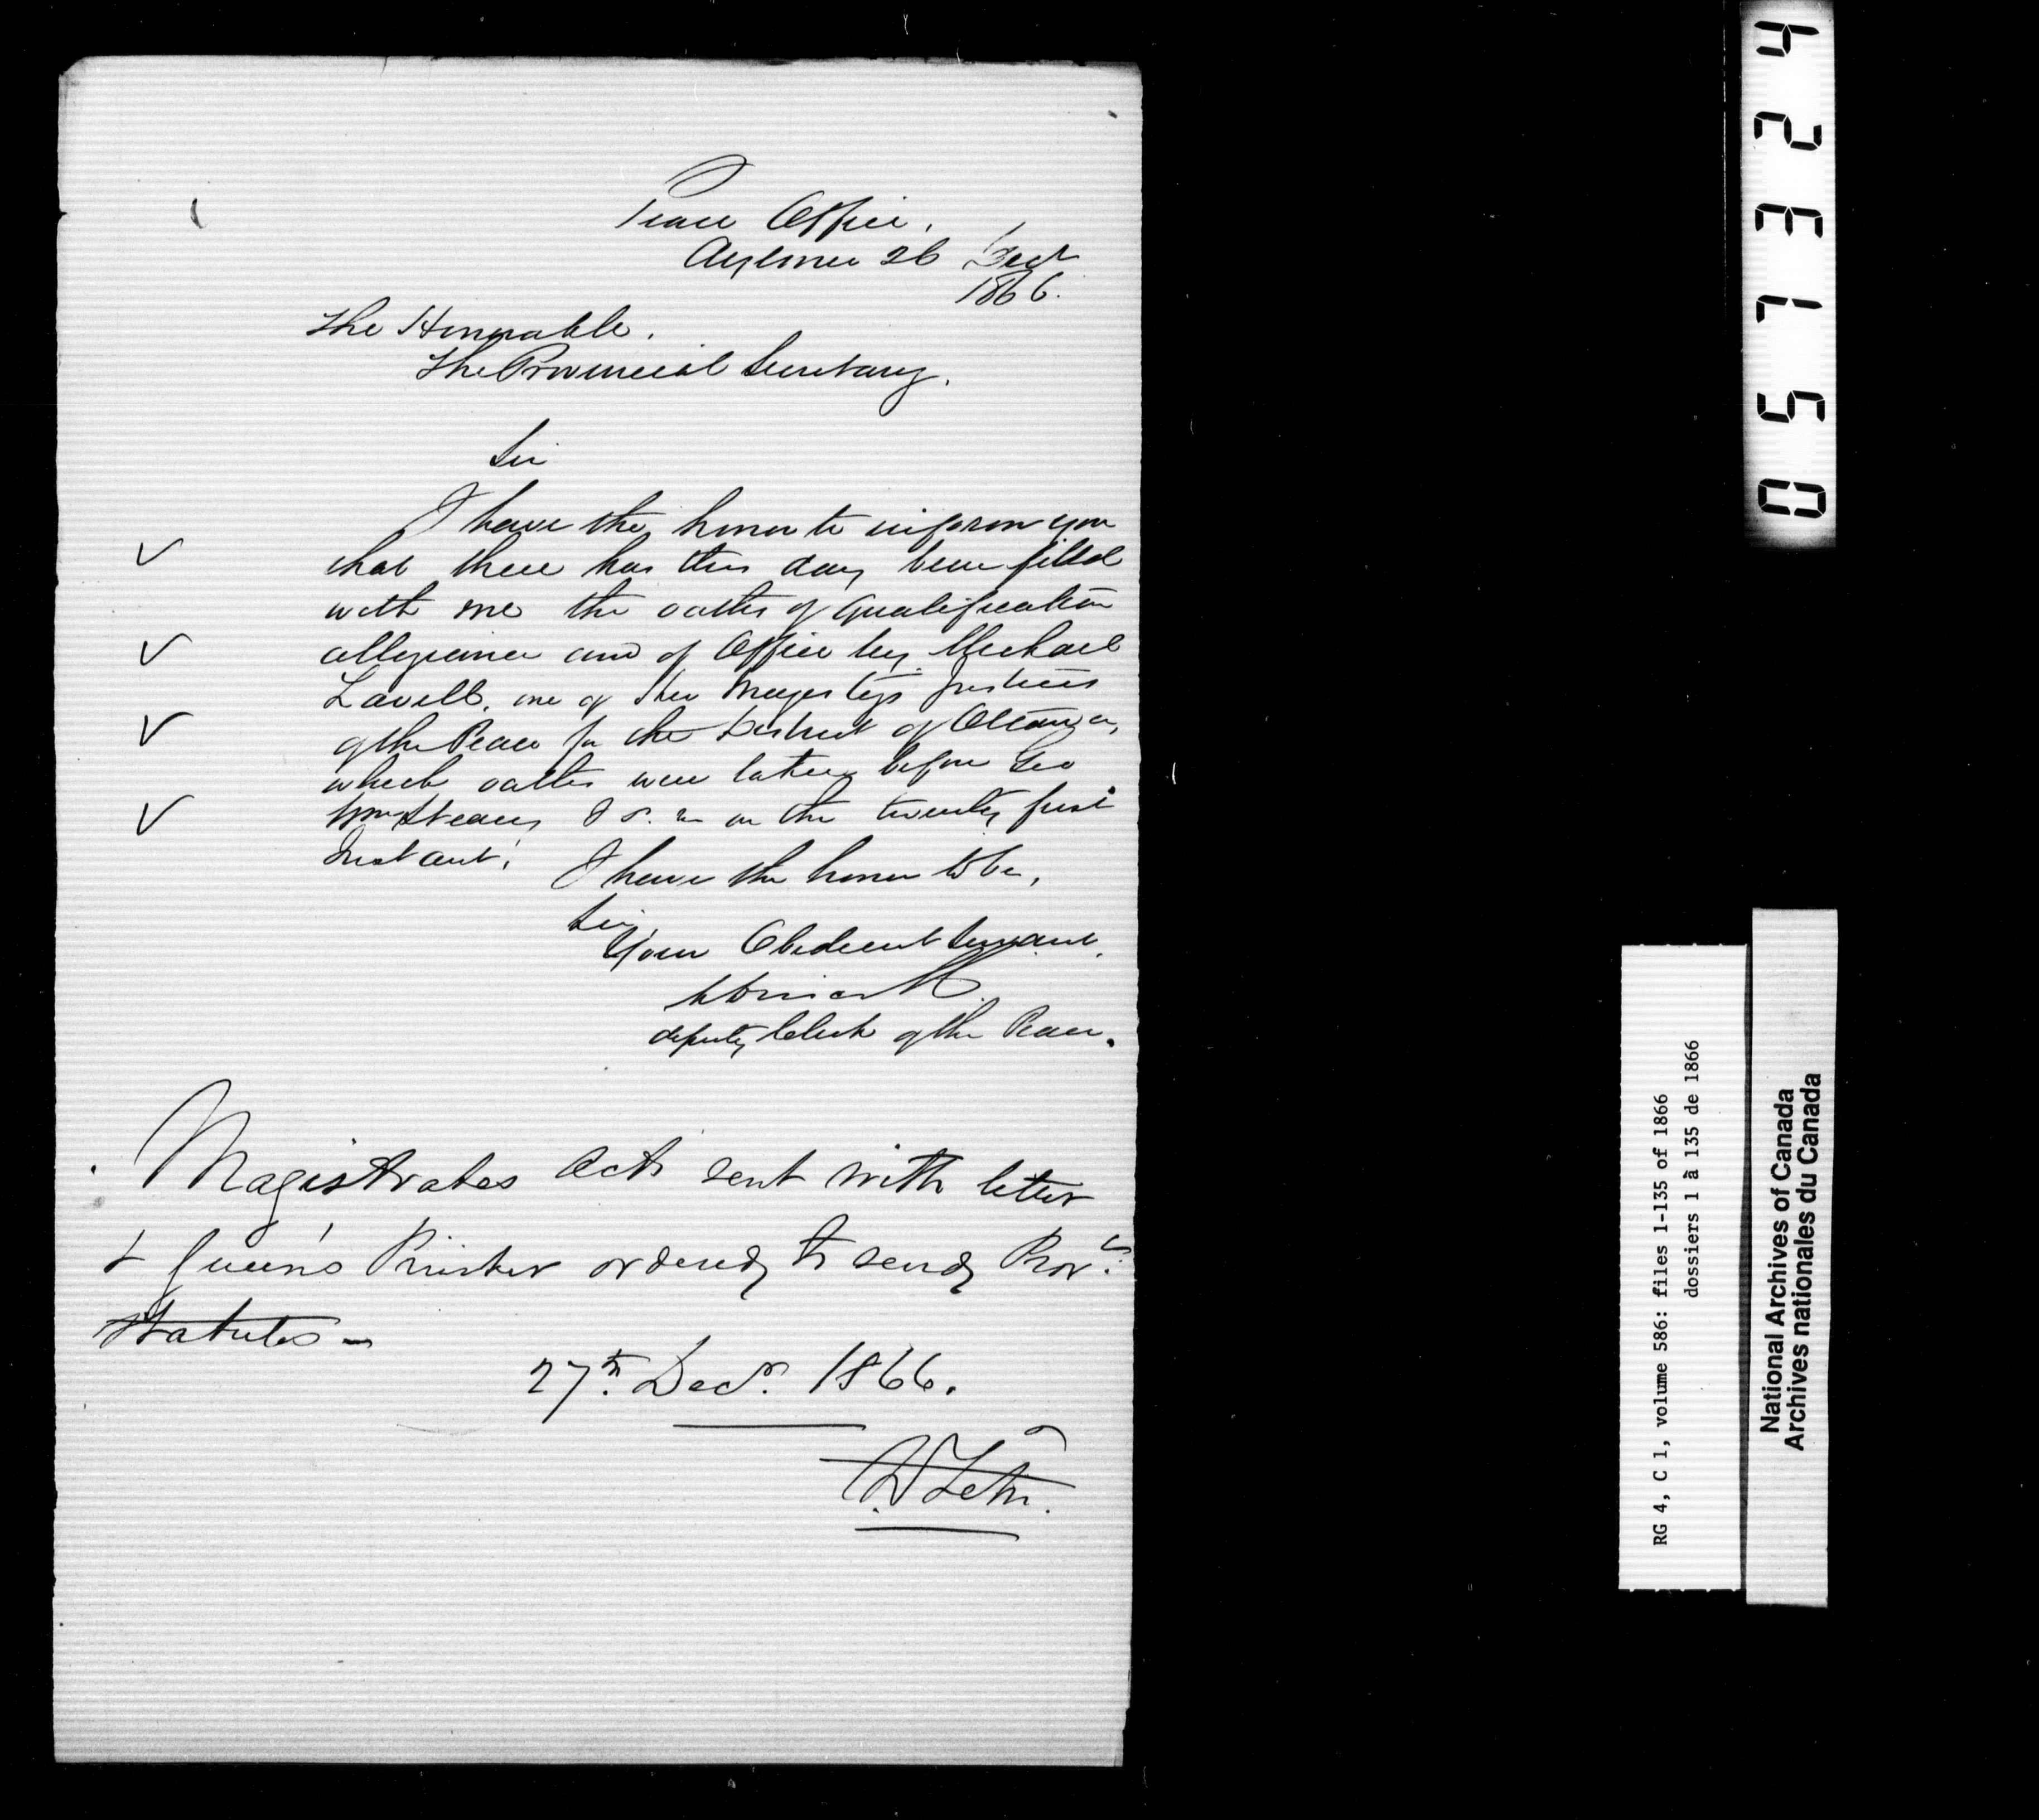 Peace Office,
Aylmer 26 Decr
1866.
The Honorable.
The Provincial Secretary.
Sir
I have the honor to inform you
that there has this day been filed
with me the oaths of qualification
allegiance and of Office by Michael
Lavell, one of Her Majestys Justices
of the Peace for the District of Ottawa,
which oaths were taken before Geo
Wm on the twenty first
Instant.
I have the honor to be,
Sir
Your Obedient Servant,
deputy Clerk of the Peace.
Magistrates Acts sent with letter
& Queen's Printer ordered to send Prov.
Statutes –
27th. Decr. 1866.
RG 4, C 1, volume 586: files 1-135 of 1866
dossiers 1 à 135 de 1866
National Archives of Canada
Archives nationales du Canada
051324